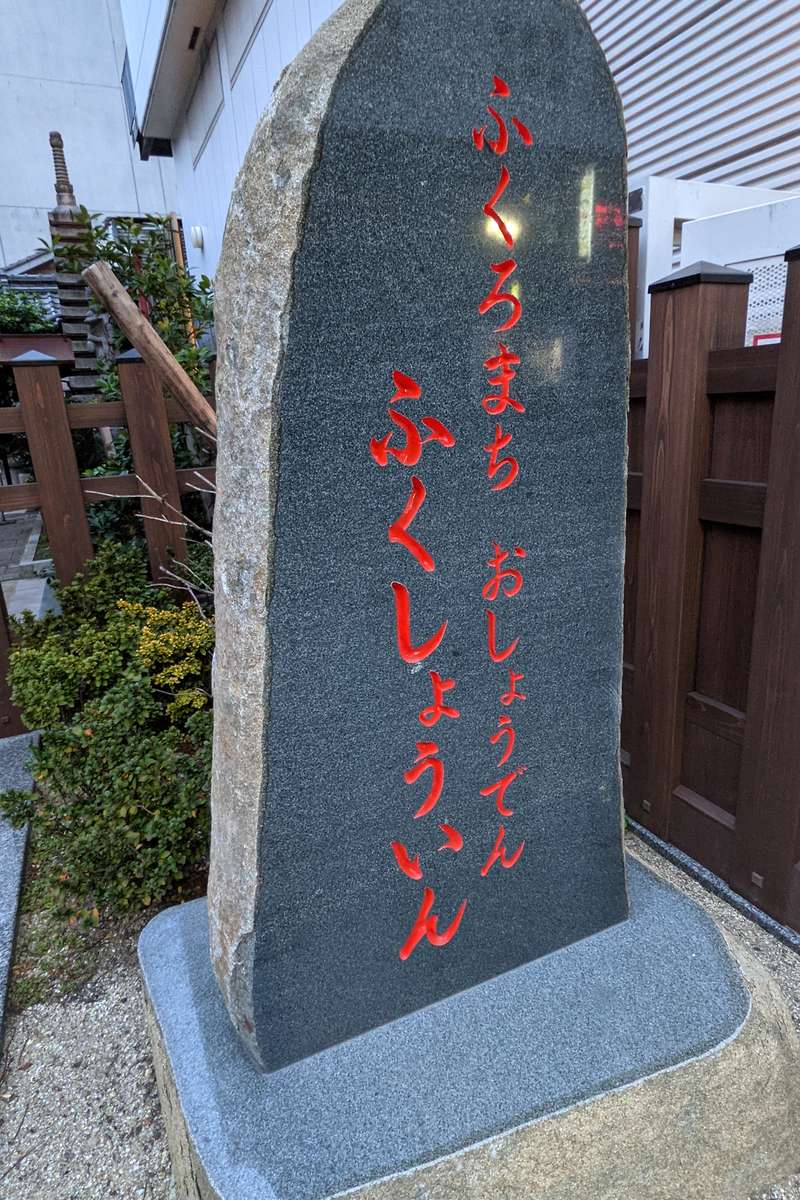 ふくろまち　おしょうでん
ふくしょういん